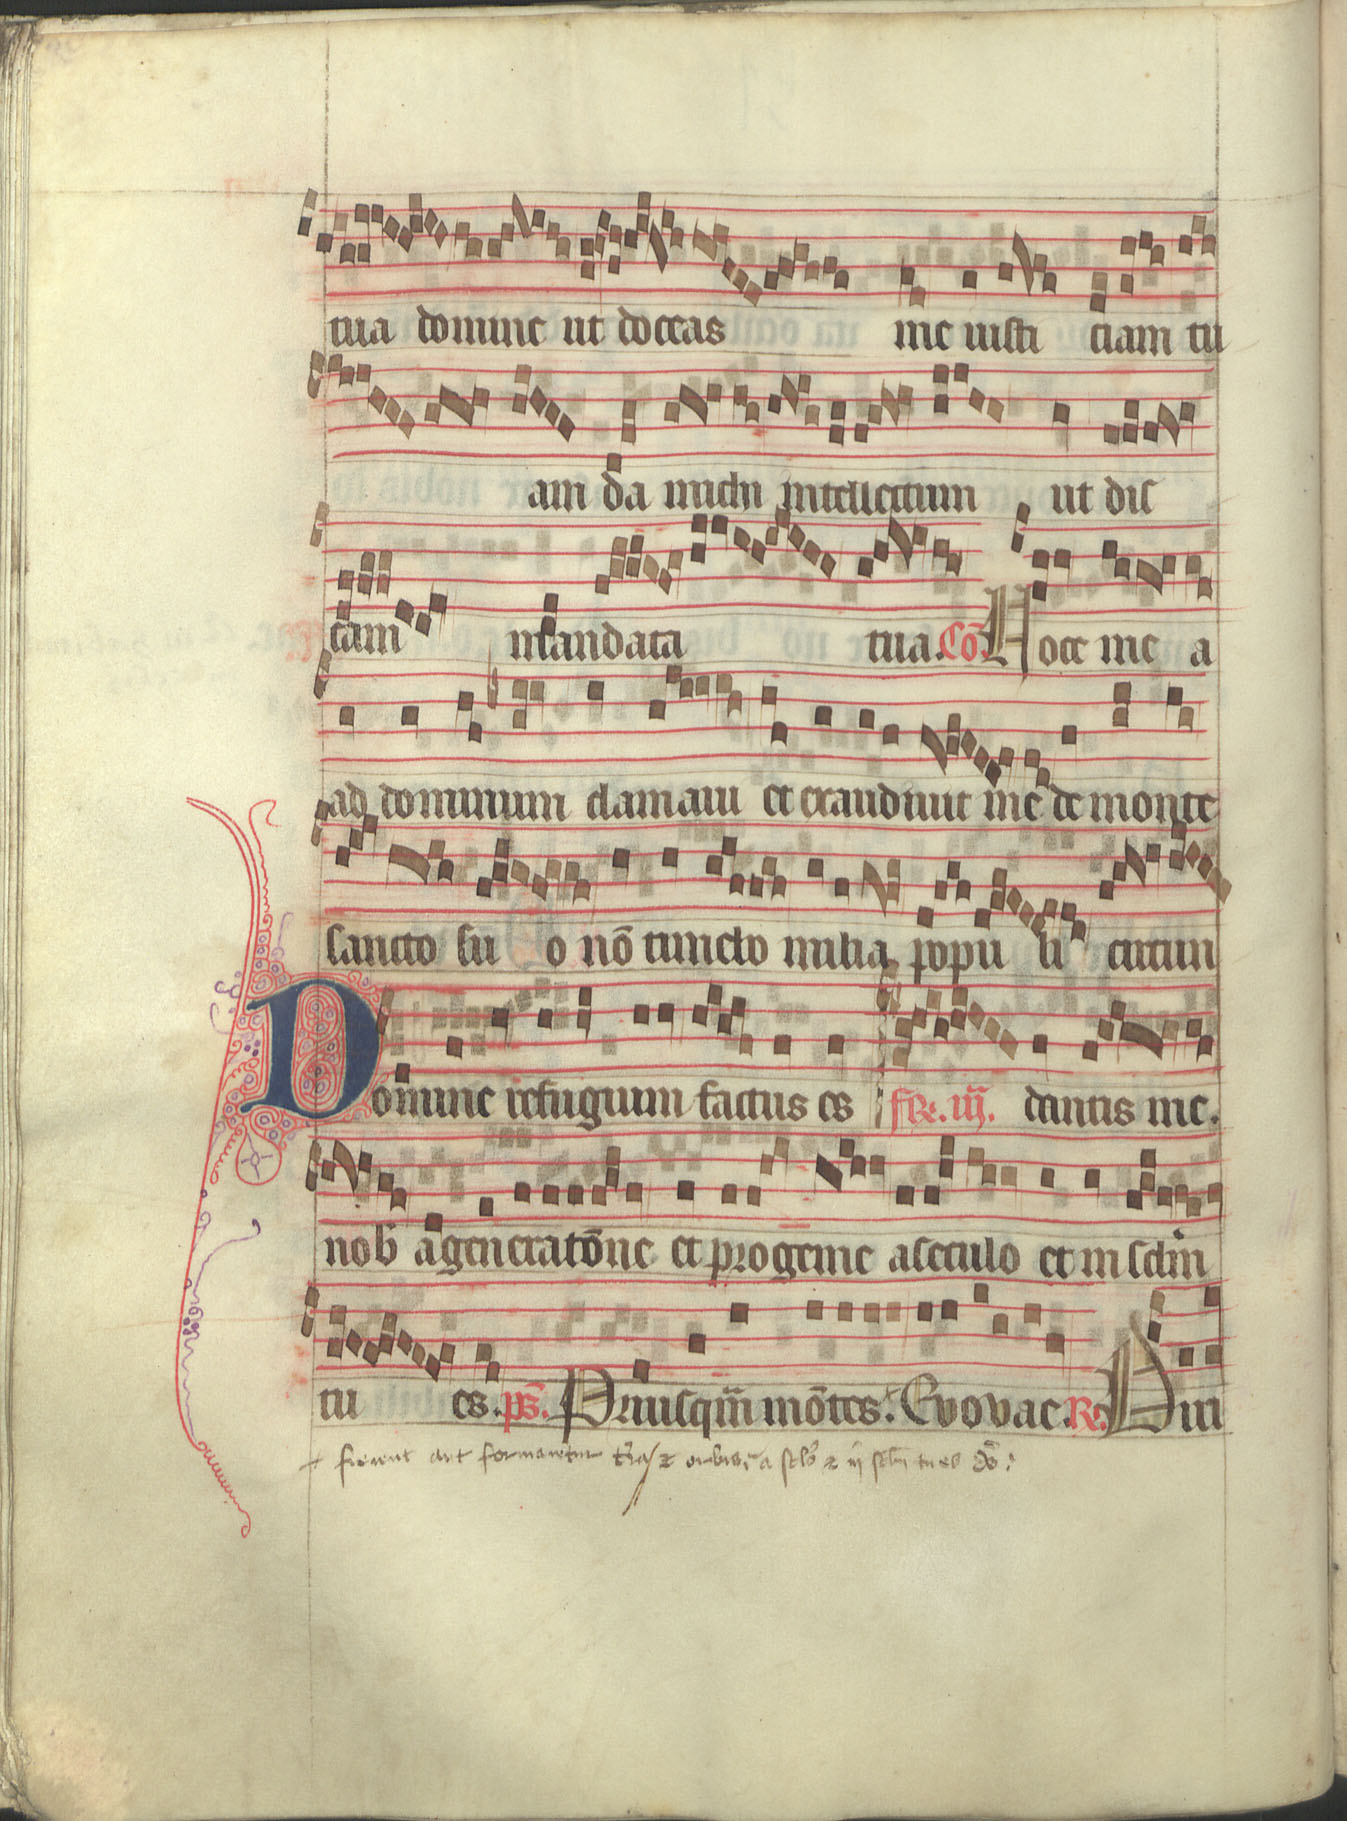 tua domine ut doceas me iusti ciam tu
am da michi intellectum ut dis
cam mandata tua. Co. Uoce me a
ad dominum clamaui et exaudiuit me de monte
sancto su o nō timebo milia popu li circun
Domine refugium factus es fR̄e. iij. dantis me.
nob ageneratōne et progenie aseculo et in sclm
tu es. ps. Priusqm̄ mōtes. Evovae. R. Diri
fierent aut formaretur t̄ra et orbis a sclō et ī sclm tu es dō: